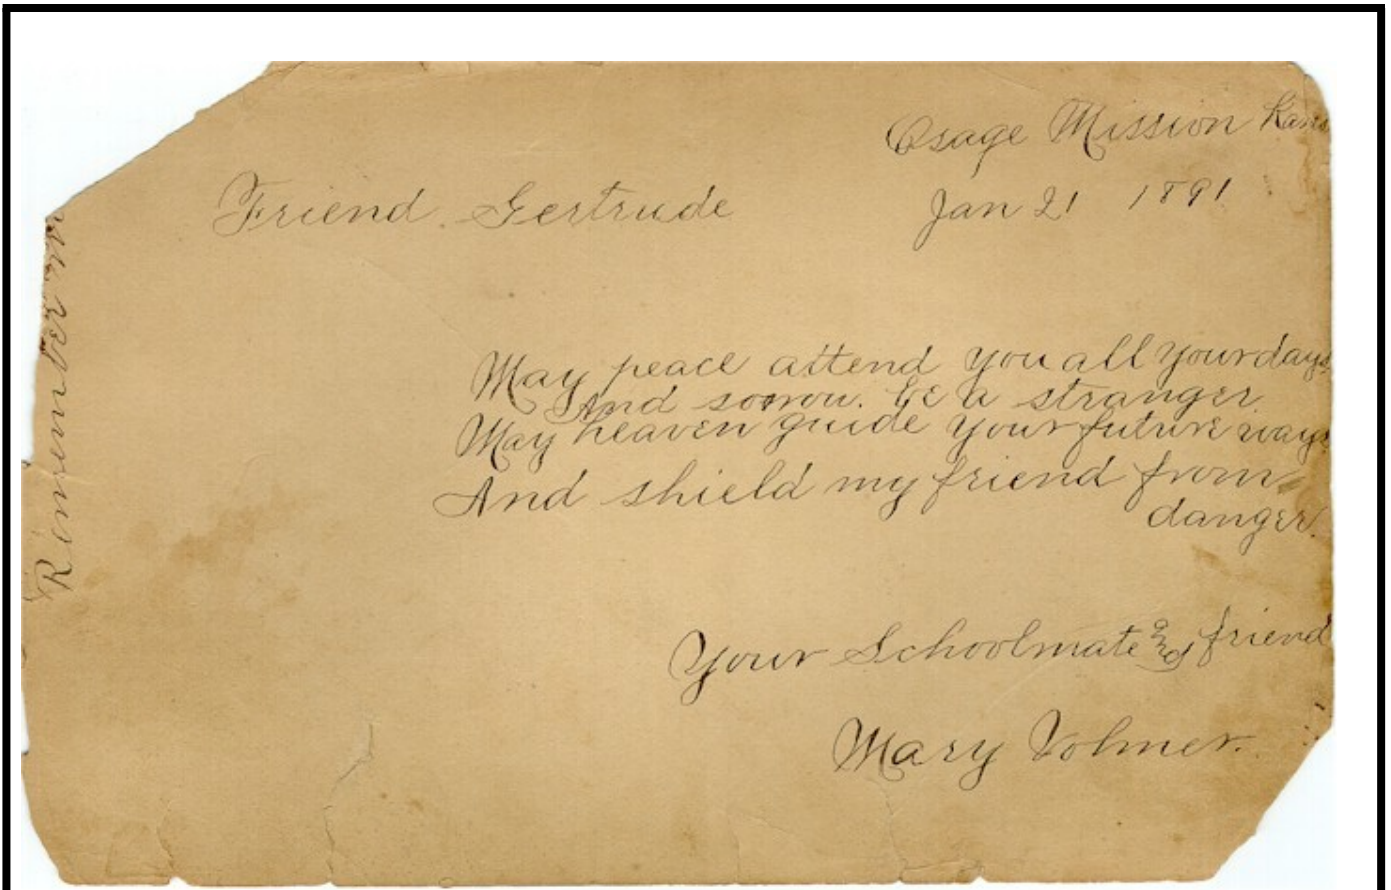 Osage Mission Kans
Friend Gertrude
Jan 21 1891
May peace attend you all your days
And sorrow. be a stranger
May heaven guide your future ways
And shield my friend from
danger.
Your Schoolmate and friend
Mary Volmer.
Remember m